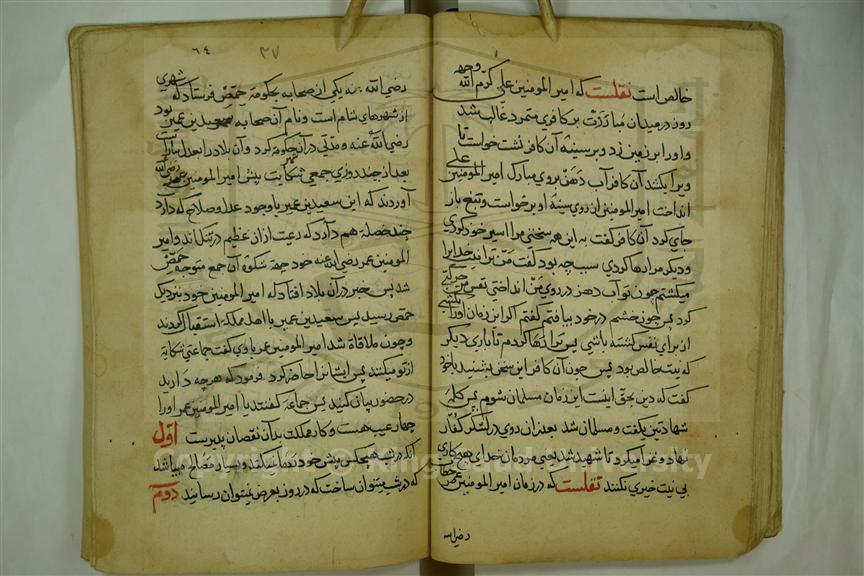 خالص است نقلست که امیر المومنین علی کرّم الله وجهه
روزی در میدان مبارزت بر کافری متمرد غالب شد
و او را بر زمین زد و بر سینهٔ آن کافر نشست خواست تا
ویرا بکشد آن کافر آب دهن بروی مبارک امیر المومنین علی
انداخت امیر المومنین از روی سینهٔ او برخواست و تیغ باز
جای کرد آن کافر گفت به این همه سختی مرا اسیر خود کردی
و دیگر مرا رها کردی سبب چه بود گفت من ترا از برای خدا
میکشتم چون تو آب دهن در روی من انداختی نفس من حرکتی
کرد پس چون خشم در خود بیافتم گفتم اگر این زمان او را بکشی
از برای نفس کشته باشی پس ترا رها کردم تا باری دیگر
که نیت خالص بود پس چون آن کافر این سخن بشنید با خود
گفت که دین بحق اینست این زمان مسلمان شوم پس کلمهٔ
شهادتین بگفت و مسلمان شد بعد از آن روی در لشکر کفار
نهاد و غزا میکرد تا شهید شد یعنی مردان خدای هیچ کاری
بی نیت خیری نکنند نقلست که در زمان امیر المومنین عمر
رضی الله
٣٧ ٦٤
رضی الله عنه یکی از صحابه بحکومة حمص فرستاد که شهری
از شهرهای شام است و نام آن صحابه سعید بن عمیر بود
رضی الله عنه و مدّتی در آن حکومة کرد و آن بلاد را بعدل بیاراست
بعد از چند روزی جمعی شکایت پیش امیر المومنین عمر رضی الله
آوردند که این سعید بن عمیر با وجود عدل و صلاح که دارد
چند خصلة هم دارد که رعیت از آن عظیم در تنک اند و امیر
المومنین عمر رضی الله عنه خود جهة شکوهٔ آن جمع متوجه حمص
شد پس خبر در آن بلاد افتاد که امیر المومنین خود بنزدیک
حمص رسید پس سعید بن عمیر با اهل مملکة استقبال کردند
و چون ملاقاة شد امیر المومنین عمر با وی گفت جماعتی شکایة
از تو میکنند پس ایشانرا حاضر کرد فرمود که هر چه دارید
در حضور بیان کنید پس جماعة گفتند یا امیر المومنین عمر او را
چهار عیب هست و کار مملکت بدان نقصان پذیرست اوّل
آنکه در شب هیچکس پیش خود رها نمیکند و بسیار مصالح میباشد
که در شب میتوان ساخت که در روز بعرض نمیتوان رسانید دوم
Copyright © King Saud University